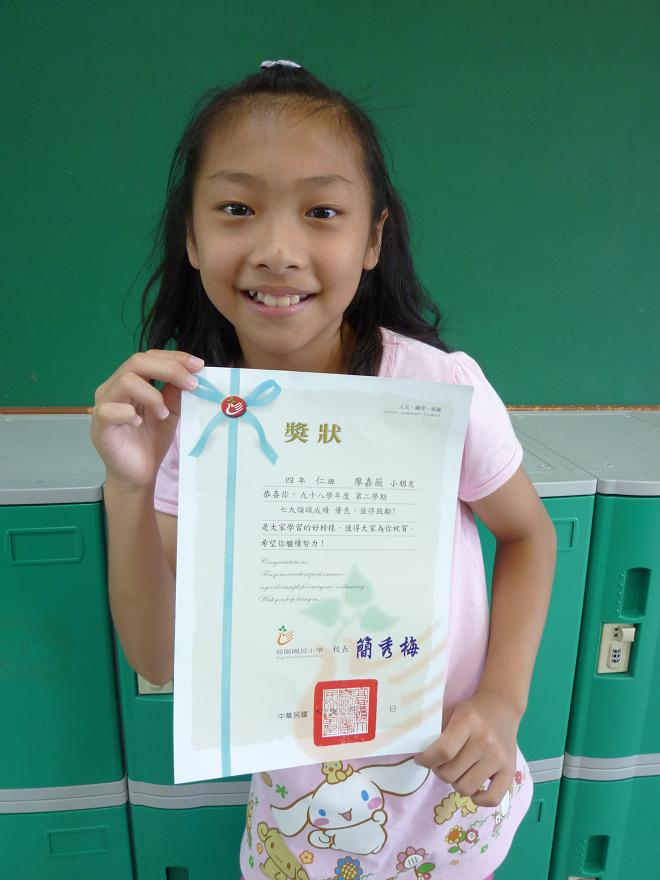 人文·績效·卓越
獎狀
四年 仁班 廖嘉薇 小朋友
恭喜你,九十八學年度 第二學期
七大領域成績 優良,值得鼓勵!
是大家學習的好榜樣,值得大家為你祝賀。
希望你繼續努力!
Congratulations.
For your excellent performance
國民小學 校長 簡秀梅
中華民國 日